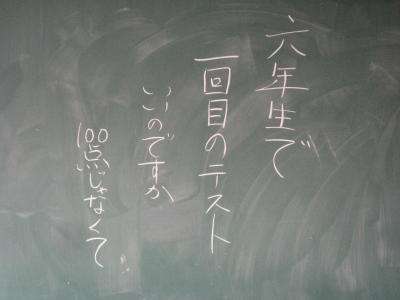 六年生で
一回目のテスト
いいのですか
100点じゃなくて